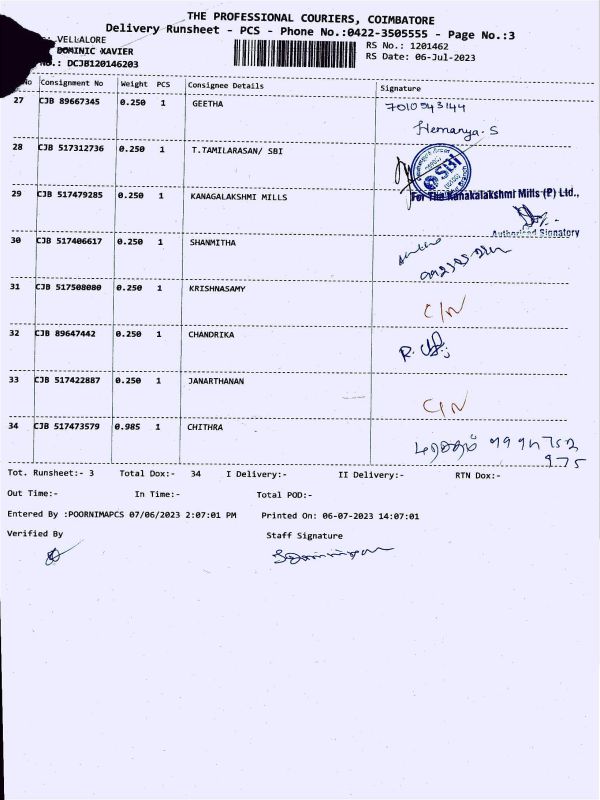 THE PROFESSIONAL COURIERS, COIMBATORE
Delivery Runsheet - PCS - Phone No.:0422-3505555 - Page No.:3
VELLALORE
RS No.: 1201462
DOMINIC XAVIER
RS Date: 06-Jul-2023
No.: DCJB120146203
No Consignment No Weight PCS Consignee Details Signature
27 CJB 89667345 0.250 1 GEETHA 7010943144
Hemanya. S
28 CJB 517312736 0.250 1 T.TAMILARASAN/ SBI SBI
29 CJB 517479285 0.250 1 KANAGALAKSHMI MILLS For The Kanakalakshmi Mills (P) Ltd.,
Authorised Signatory
30 CJB 517406617 0.250 1 SHANMITHA
31 CJB 517508080 0.250 1 KRISHNASAMY C/N
32 CJB 89647442 0.250 1 CHANDRIKA
33 CJB 517422887 0.250 1 JANARTHANAN C/N
34 CJB 517473579 0.985 1 CHITHRA
Tot. Runsheet:- 3 Total Dox:- 34 I Delivery:- II Delivery:- RTN Dox:-
Out Time:- In Time:- Total POD:-
Entered By :POORNIMAPCS 07/06/2023 2:07:01 PM Printed On: 06-07-2023 14:07:01
Verified By Staff Signature